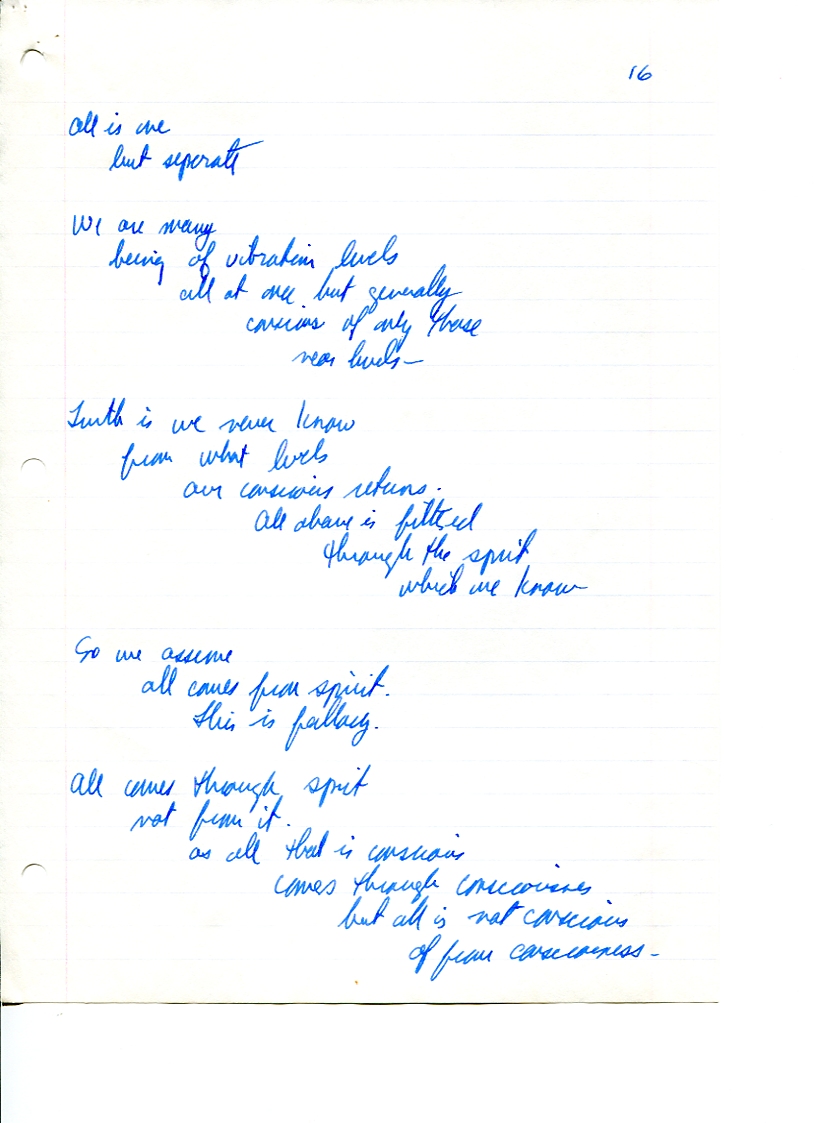 16
All is one
but seperate
We are many
being of vibration levels
all at once but generally
conscious of only those
near levels—
Truth is we never know
from what levels
our conscious returns.
All above is filtered
through the spirit
which we know
So we assume
all comes from spirit.
This is fallacy.
All comes through spirit
not from it.
as all that is conscious
comes through consciousness
but all is not conscious
of from consciousness –